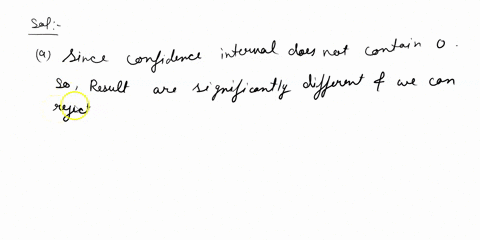 Sol:-
(a) Since confidence internal does not contain 0.
So, Result are significantly different & we can
rejec